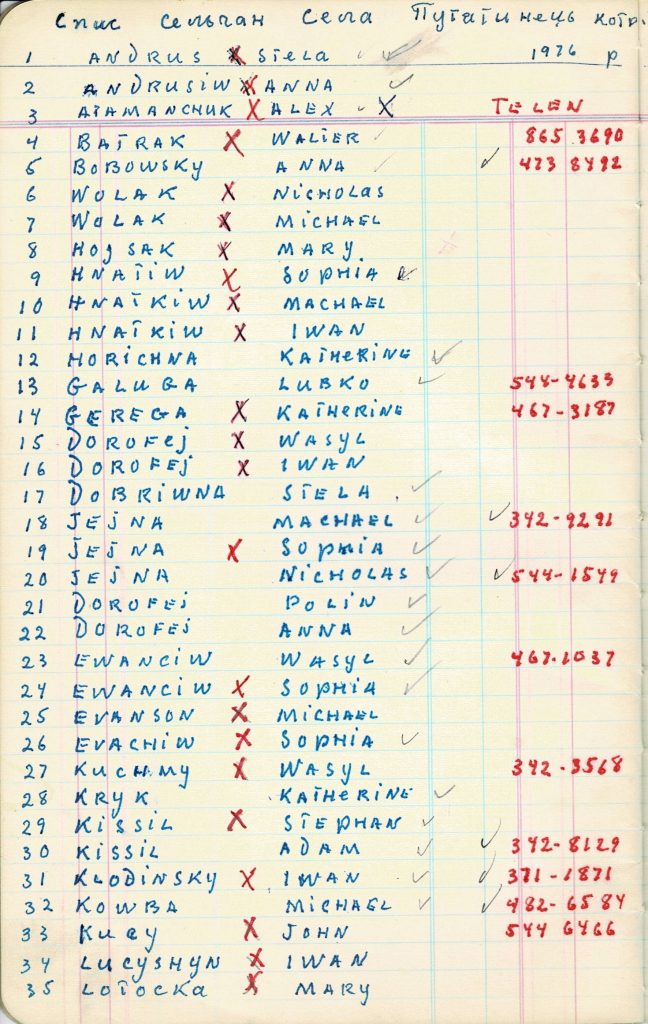 Спис Сельчан Села Путатинець котр.
1 ANDRUS X Stela ✓ 1976 р
2 ANDRUSIW X ANNA ✓
3 ATAMANCHUK X ALEX ✓ X TELEN
4 BATRAK X WALTER ✓ 865 3690
5 BOBOWSKY ANNA ✓ ✓ 473 8492
6 WOLAK X NICHOLAS
7 WOLAK X MICHAEL
8 HOJSAK X MARY.
9 HNATIW X SOPHIA ✓
10 HNATKIW X MACHAEL
11 HNATKIW X IWAN
12 HORICHNA KATHERINE ✓
13 GALUGA LUBKO ✓ 544-4633
14 GEREGA X KATHERINE 467-3187
15 DOROFEJ X WASYL
16 DOROFEJ X IWAN
17 DOBRIWNA STELA . ✓
18 JEJNA MACHAEL ✓ ✓ 342-9291
19 JEJNA X SOPHIA ✓
20 JEJNA NICHOLAS ✓ ✓ 544-1549
21 DOROFEJ POLIN ✓
22 DOROFEJ ANNA ✓
23 EWANCIW WASYL ✓ 467.1037
24 EWANCIW X SOPHIA ✓
25 EVANSON X MICHAEL
26 EVACHIW X SOPHIA ✓
27 KUCHMY X WASYL 342-3568
28 KRYK KATHERINE ✓
29 KISSIL X STEPHAN ✓
30 KISSIL ADAM ✓ ✓ 342-8129
31 KLODINSKY X IWAN ✓ ✓ 371-1871
32 KOWBA MICHAEL ✓ ✓ 482-6584
33 KUCY X JOHN 544 6466
34 LUCYSHYN X IWAN
35 LOTOCKA X MARY